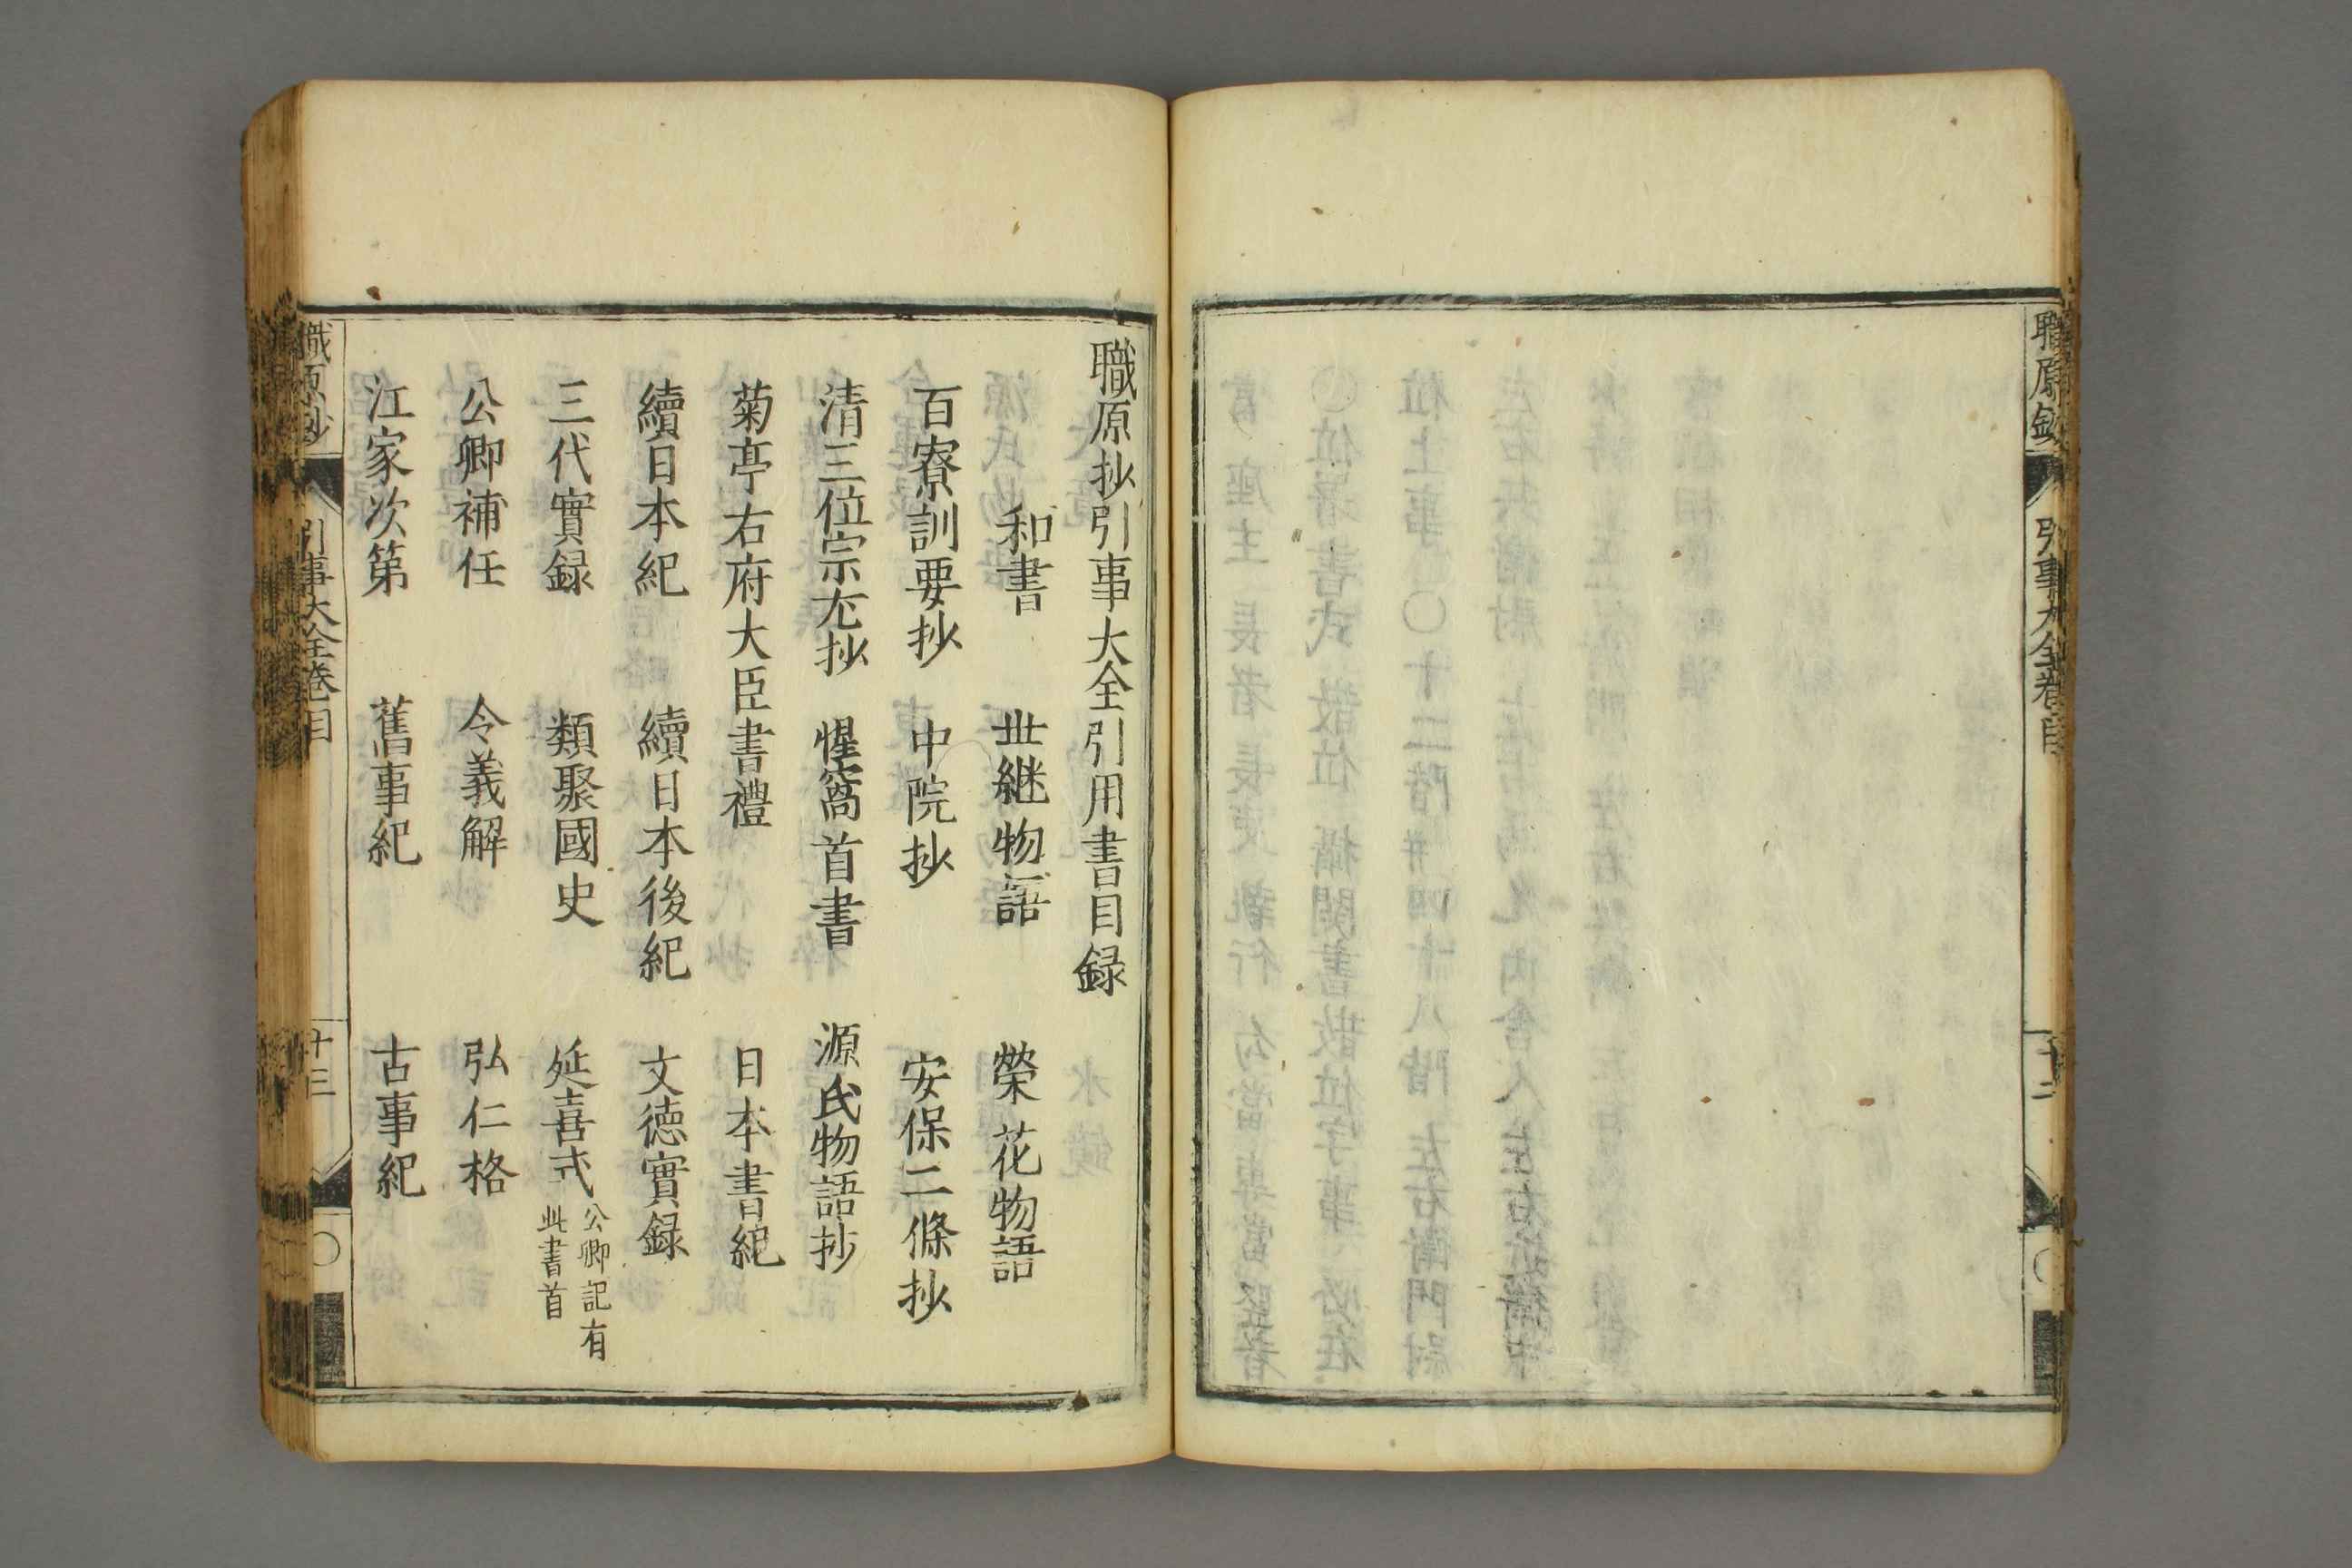 職原鈔
引事大全卷目
十二
職原抄引事大全引用書目録
和書　世継物語　榮花物語
百寮訓要抄　中院抄　安保二條抄
清三位宗尤抄　惺窩首書　源氏物語抄
菊亭右府大臣書禮　日本書紀
續日本紀　續日本後紀　文徳實録
三代實録　類聚國史　延喜式 公卿記有
此書首
公卿補任　令義解　弘仁格
江家次第　舊事紀　古事紀
職原抄
引事大全卷目
十三